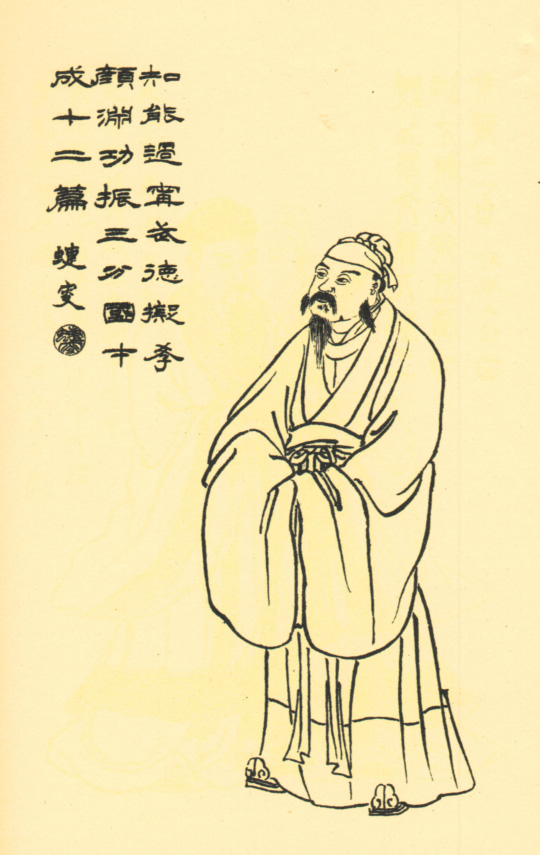 知能過甯武德擬
顏淵功振三分國才
成十二篇 蜨叟